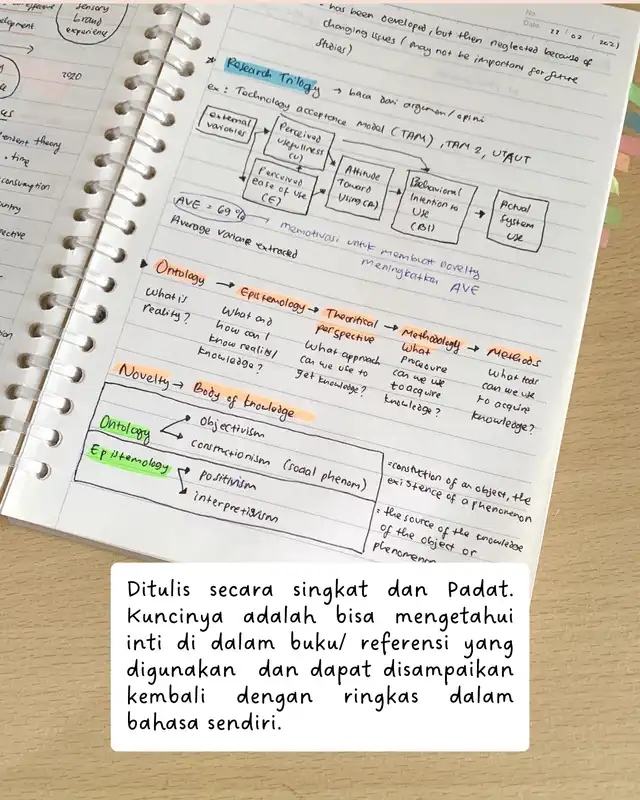 sensory
brand
experience
2020
No.
Date. 22 / 02 / 2021
has been developed, but then neglected because of
changing issues ( may not be important for future
studies )
Research Trilogy → baca dari argumen / opini
ex : Technology acceptance modal (TAM) , TAM 2, UTAUT
external
variables
Perceived
usefullness
(U)
Perceived
ease of use
(E)
Attitude
Toward
Using (A)
Behavioral
Intention to
Use
(BI)
Actual
System
Use
AVE = 69% → memotivasi untuk membuat novelty
Average variane extracted
meningkatkan AVE
Ontology → Epistemology → Theoritical → Methodology → Methods
perspective
what is
reality?
What and
how can I
know reality/
knowledge?
What approach
can we use to
get knowledge?
What
procedure
can we use
to acquire
knowledge?
What tools
can we use
to acquire
knowledge?
Novelty → Body of knowledge
Ontology
objectivism
constructionism (social phenom)
Epistemology
positivism
interpretivism
= constuction of an object, the
existence of a phenomenon
= the source of the knowledge
of the object or
ent theory
. time
consumption
untry
pective
Ditulis secara singkat dan Padat.
Kuncinya adalah bisa mengetahui
inti di dalam buku/ referensi yang
digunakan dan dapat disampaikan
kembali dengan ringkas dalam
bahasa sendiri.